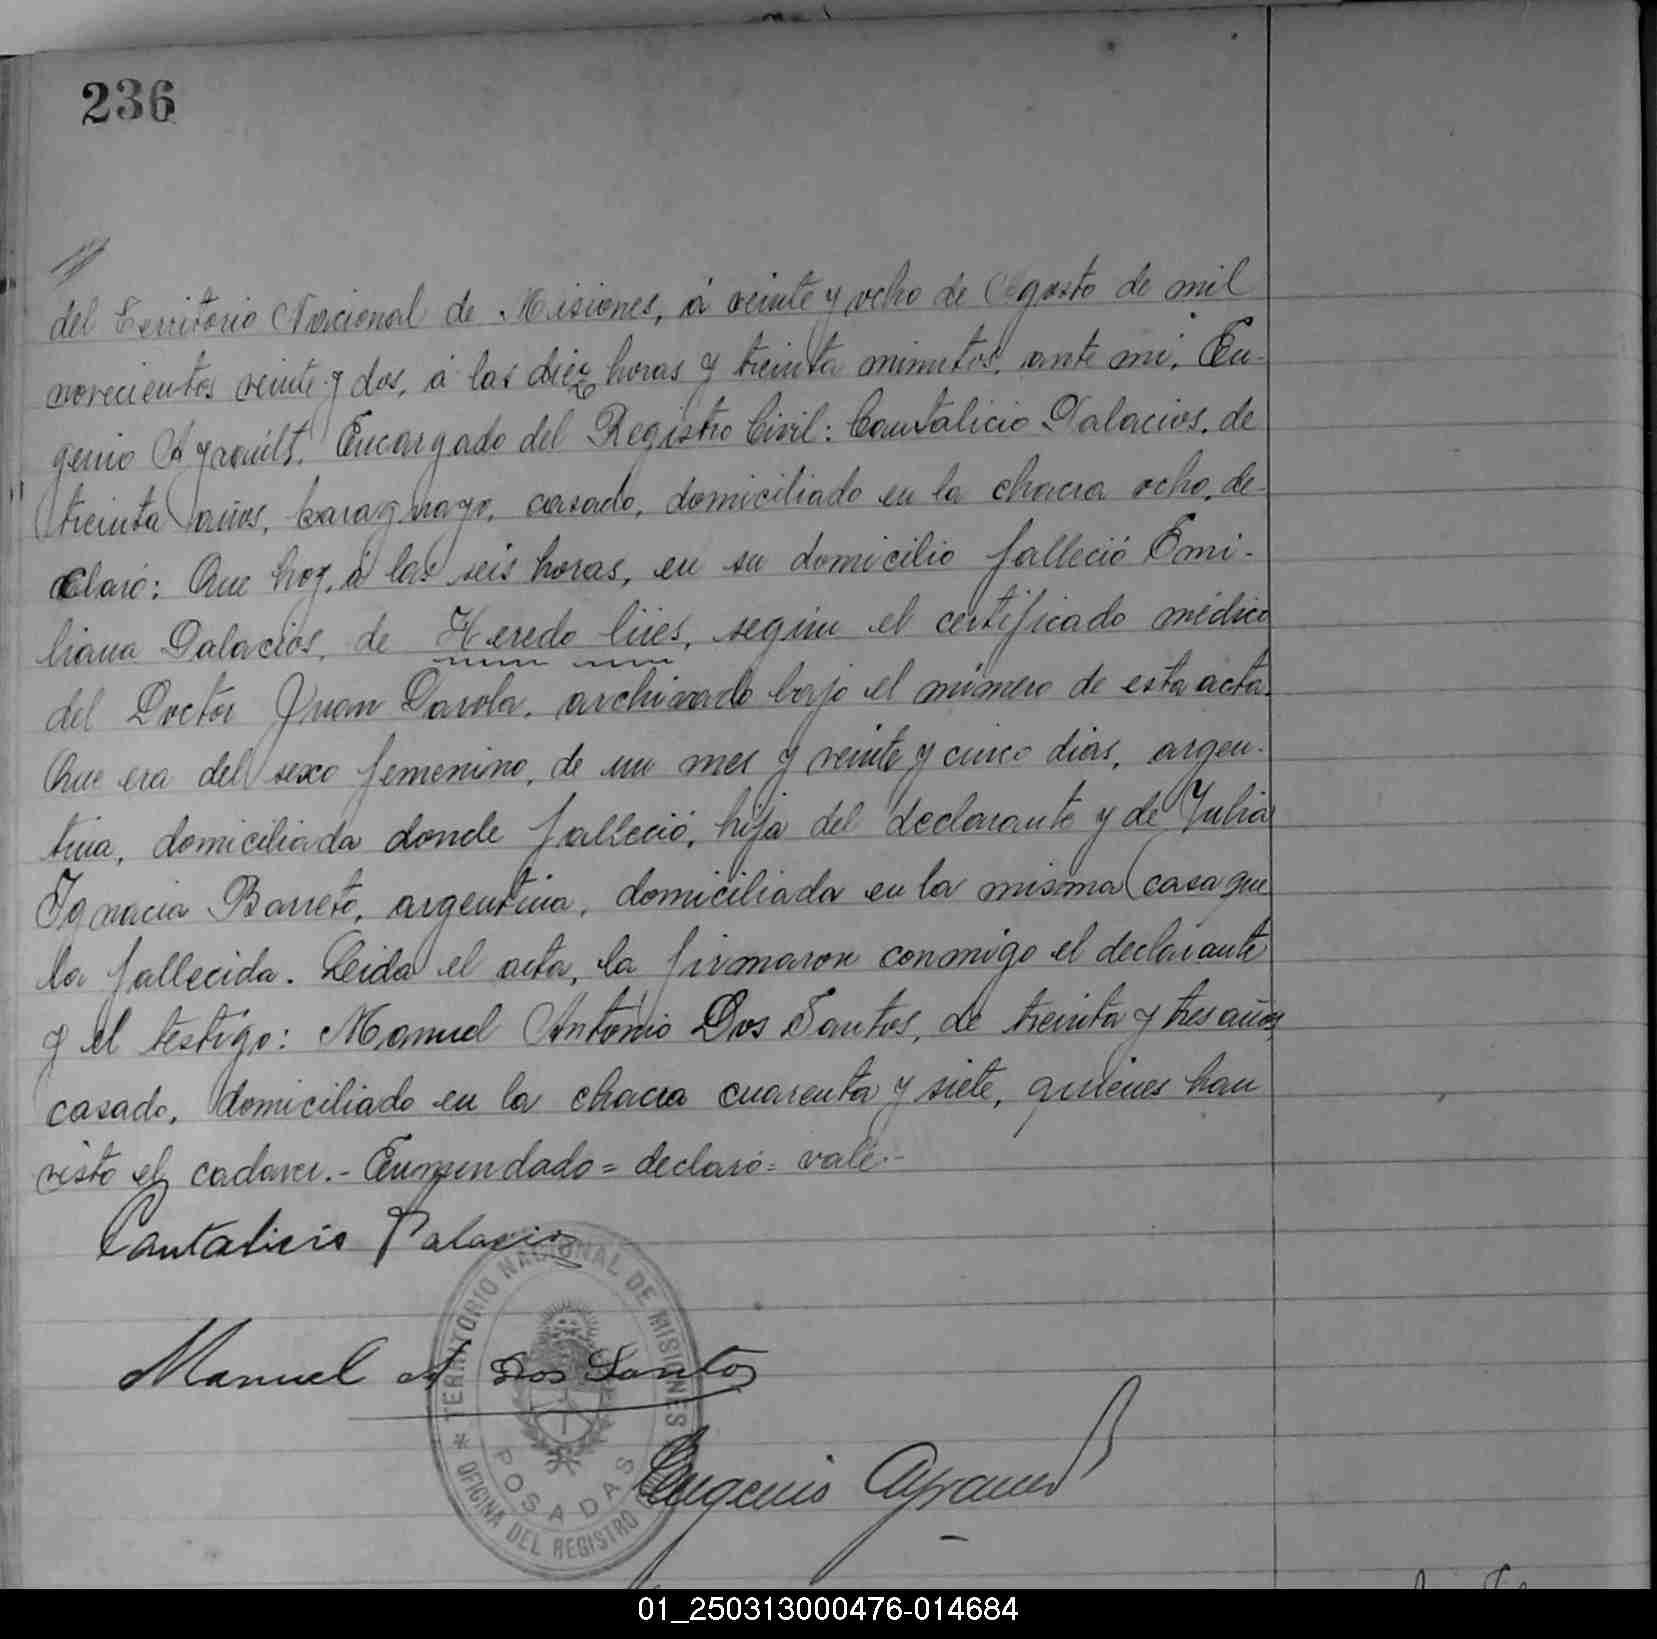 236
del Territorio Nacional de Misiones, á veinte y ocho de Agosto de mil
novecientos veinte y dos, á las diez horas y treinta minutos, ante mi, Eu-
genio Encargado del Registro Civil: Cantalicio Palacios, de
treinta años, paraguayo, casado, domiciliado en la chacra ocho, de-
claró: Que hoy, á las seis horas, en su domicilio falleció Emi-
liana Palacios, de Heredo lúes, según el certificado médico
del Doctor Juan Parola, archivado bajo el número de esta acta.
Que era del sexo femenino, de un mes y veinte y cinco dias, argen-
tina, domiciliada donde falleció, hija del declarante y de Julia
Ignacia Barreto, argentina, domiciliada en la misma casa que
la fallecida. Leida el acta, la firmaron conmigo el declarante
y el testigo: Manuel Antonio Dos Santos, de treinta y tres años,
casado, domiciliado en la chacra cuarenta y siete, quienes han
visto el cadaver.- Enmendado = declaró = vale.-
Cantalicio Palacios
TERRITORIO NACIONAL DE MISIONES
Manuel A Dos Santos
POSADAS
* OFICINA DEL REGISTRO
Eugenio
01_250313000476-014684